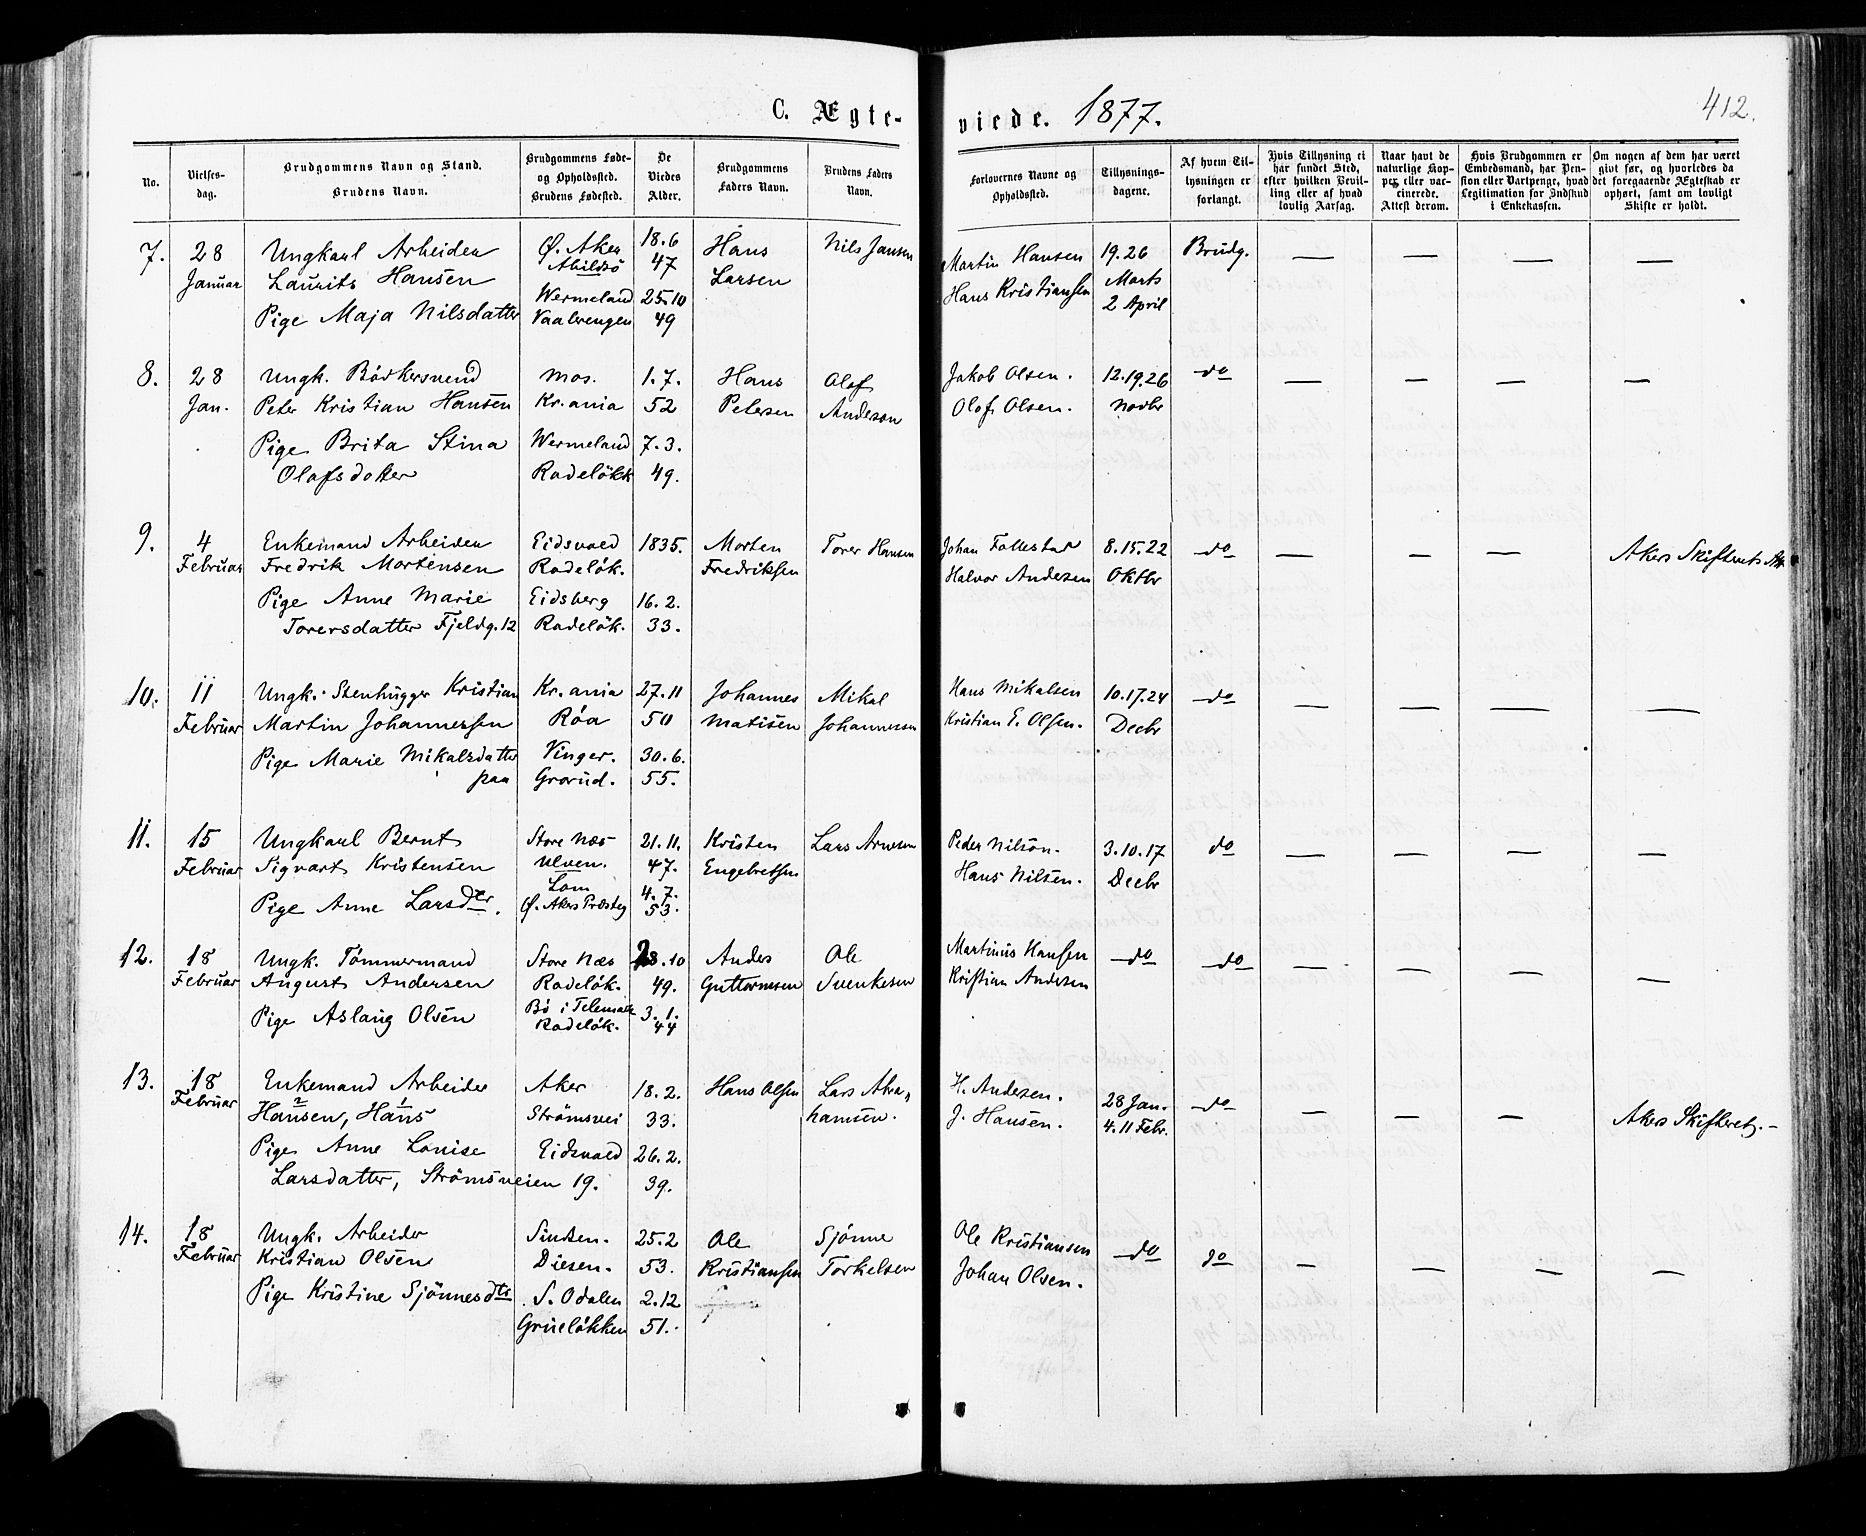 C. Ægteviede. 1877.
412.
No.
Vielses-
dag.
Brudgommens Navn og Stand.
Brudens Navn.
Brudgommens Føde-
og Opholdssted.
Brudens Fødested.
De
Viedes
Alder.
Brudgommens
Faders Navn.
Brudens Faders
Navn.
Forlovernes Navne og
Opholdssted.
Tillysnings-
dagene.
Af hvem Til-
lysningen er
forlangt.
Hvis Tillysning ei
har fundet Sted,
efter hvilken Bevil-
ling eller af hvad
lovlig Aarsag.
Naar havt de
naturlige Kop-
per eller vac-
cinerede.
Attest derom.
Hvis Brudgommen er
Embedsmand, har Pen-
sion eller Vartpenge, hvad
Legitimation for Indskud
i Enkekassen.
Om nogen af dem har været
gift før, og hvorledes da
det foregaaende Ægteskab er
ophørt, samt om lovligt
Skifte er holdt.
7.
28
Januar
Ungkarl Arbeider
Laurits Hansen
Pige Maja Nilsdatter
Ø. Aker
Abildsö
Wermeland
Vaalerengen
18.6
47
25.10
49
Hans
Larsen
Nils Jansen
Martin Hansen
Hans Kristiansen
19.26
Marts
2 April
Brudg.
— — — —
8.
28
Jan.
Ungk. Bödkersvend
Peter Kristian Hansen
Pige Brita Stina
Olafsdotter
Mos.
Kr.ania
Wermeland
Rodelökk
1.7.
52
7.3.
49.
Hans
Petersen
Olof
Anderson
Jakob Olsen.
Olof Olsen.
12.19.26
Novbr
do
— — — —
9.
4
Februar
Enkemand Arbeider
Fredrik Mortensen
Pige Anne Marie
Torersdatter Fjeldg. 12
Eidsvold
Rodelök.
Eidsberg
Rodelök.
1835.
16.2.
33.
Morten
Fredriksen
Torer Hansen
Johan Follestad
Halvor Andersen
8.15.22
Oktbr
do
— — —
Akers Skifterets
10.
11
Februar
Ungk. Stenhugger Kristian
Martin Johannessen
Pige Marie Mikalsdatter
paa
Kr.ania
Röa
Vinger.
Grorud.
27.11
50
30.6.
55.
Johannes
Matisen
Mikal
Johannesen
Hans Mikalsen
Kristian E. Olsen.
10.17.24
Decbr
do
— — — —
11.
15
Februar
Ungkarl Bernt
Sigvart Kristensen
Pige Anne Larsdtr.
Store Næs
Ulven.
Lom
Ø. Akers Præsteg
21.11.
47.
4.7.
53.
Kristen
Engebretsen
Lars Arnesen
Peder Nilsön.
Hans Nilsen.
3.10.17
Decbr
do
— — — —
12.
18
Februar
Ungk. Tömmermand
August Andersen
Pige Aslaug Olsen
Store Næs
Rodelök.
Bö i Telemark
Rodelök.
28.10
49.
3.1.
44
Anders
Guttormsen
Ole
Svenkesen
Martinius Hansen
Kristian Andersen
do
do
— — — —
13.
18
Februar
Enkemand Arbeider
Hansen, Hans
Pige Anne Louise
Larsdatter, Strömsveien 19.
Aker
Strömsvei
Eidsvold
18.2.
33.
26.2.
39.
Hans Olsen
Lars Abra„
hamsen.
H. Andersen.
J. Hansen.
28 Jan.
4.11 Febr.
do
— — —
Akers Skifteretg.
14.
18
Februar
Ungk. Arbeider
Kristian Olsen
Pige Kristine Sjönnesdtr
Sinsen.
Diesen.
S. Odalen
Grüneløkken
25.2
53.
2.12
51.
Ole
Kristiansen
Sjönne
Torkelsen
Ole Kristiansen
Johan Olsen.
do
do
— — — —